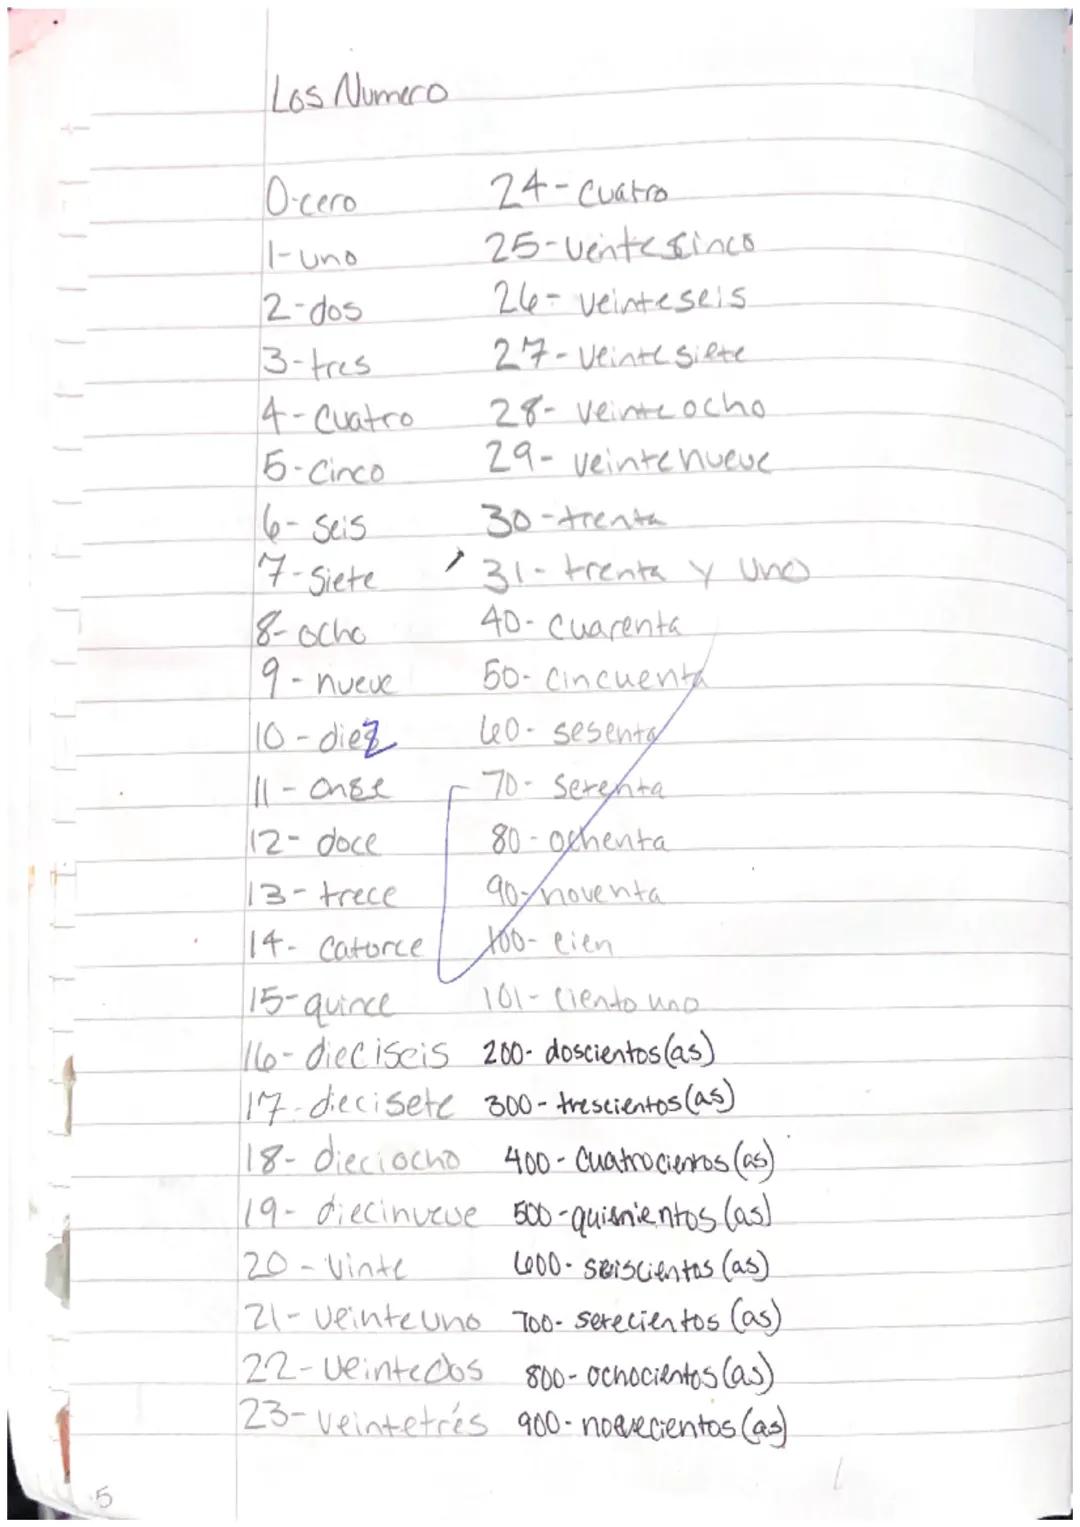 Los Numero
0-cero
1-uno
2-dos
3-tres
4-Cuatro
5-Cinco
6-Seis
7-Siete
8-ocho
9-nueve
10-diez
11-onse
12-doce
13-trece
14-Catorce
15-quince
16-dieciseis
17-diecisete
18-dieciocho
19-diecinueve
20-Vinte
21-veinteuno
22-veintedos
23-veintetrés
24-Cuatro
25-ventesinco
26-veinteseis
27-veintesiete
28-veinteocho
29-veintenueve
30-trenta
31-trenta y uno
40-Cuarenta
50-Cincuenta
60-sesenta
70-Setenta
80-ochenta
90-noventa
100-cien
101-Ciento uno
200-doscientos(as)
300-trescientos(as)
400-Cuatrocientos(as)
500-quisnientos(as)
600-seiscientos(as)
700-setecientos(as)
800-ochocientos(as)
900-novecientos(as)
5